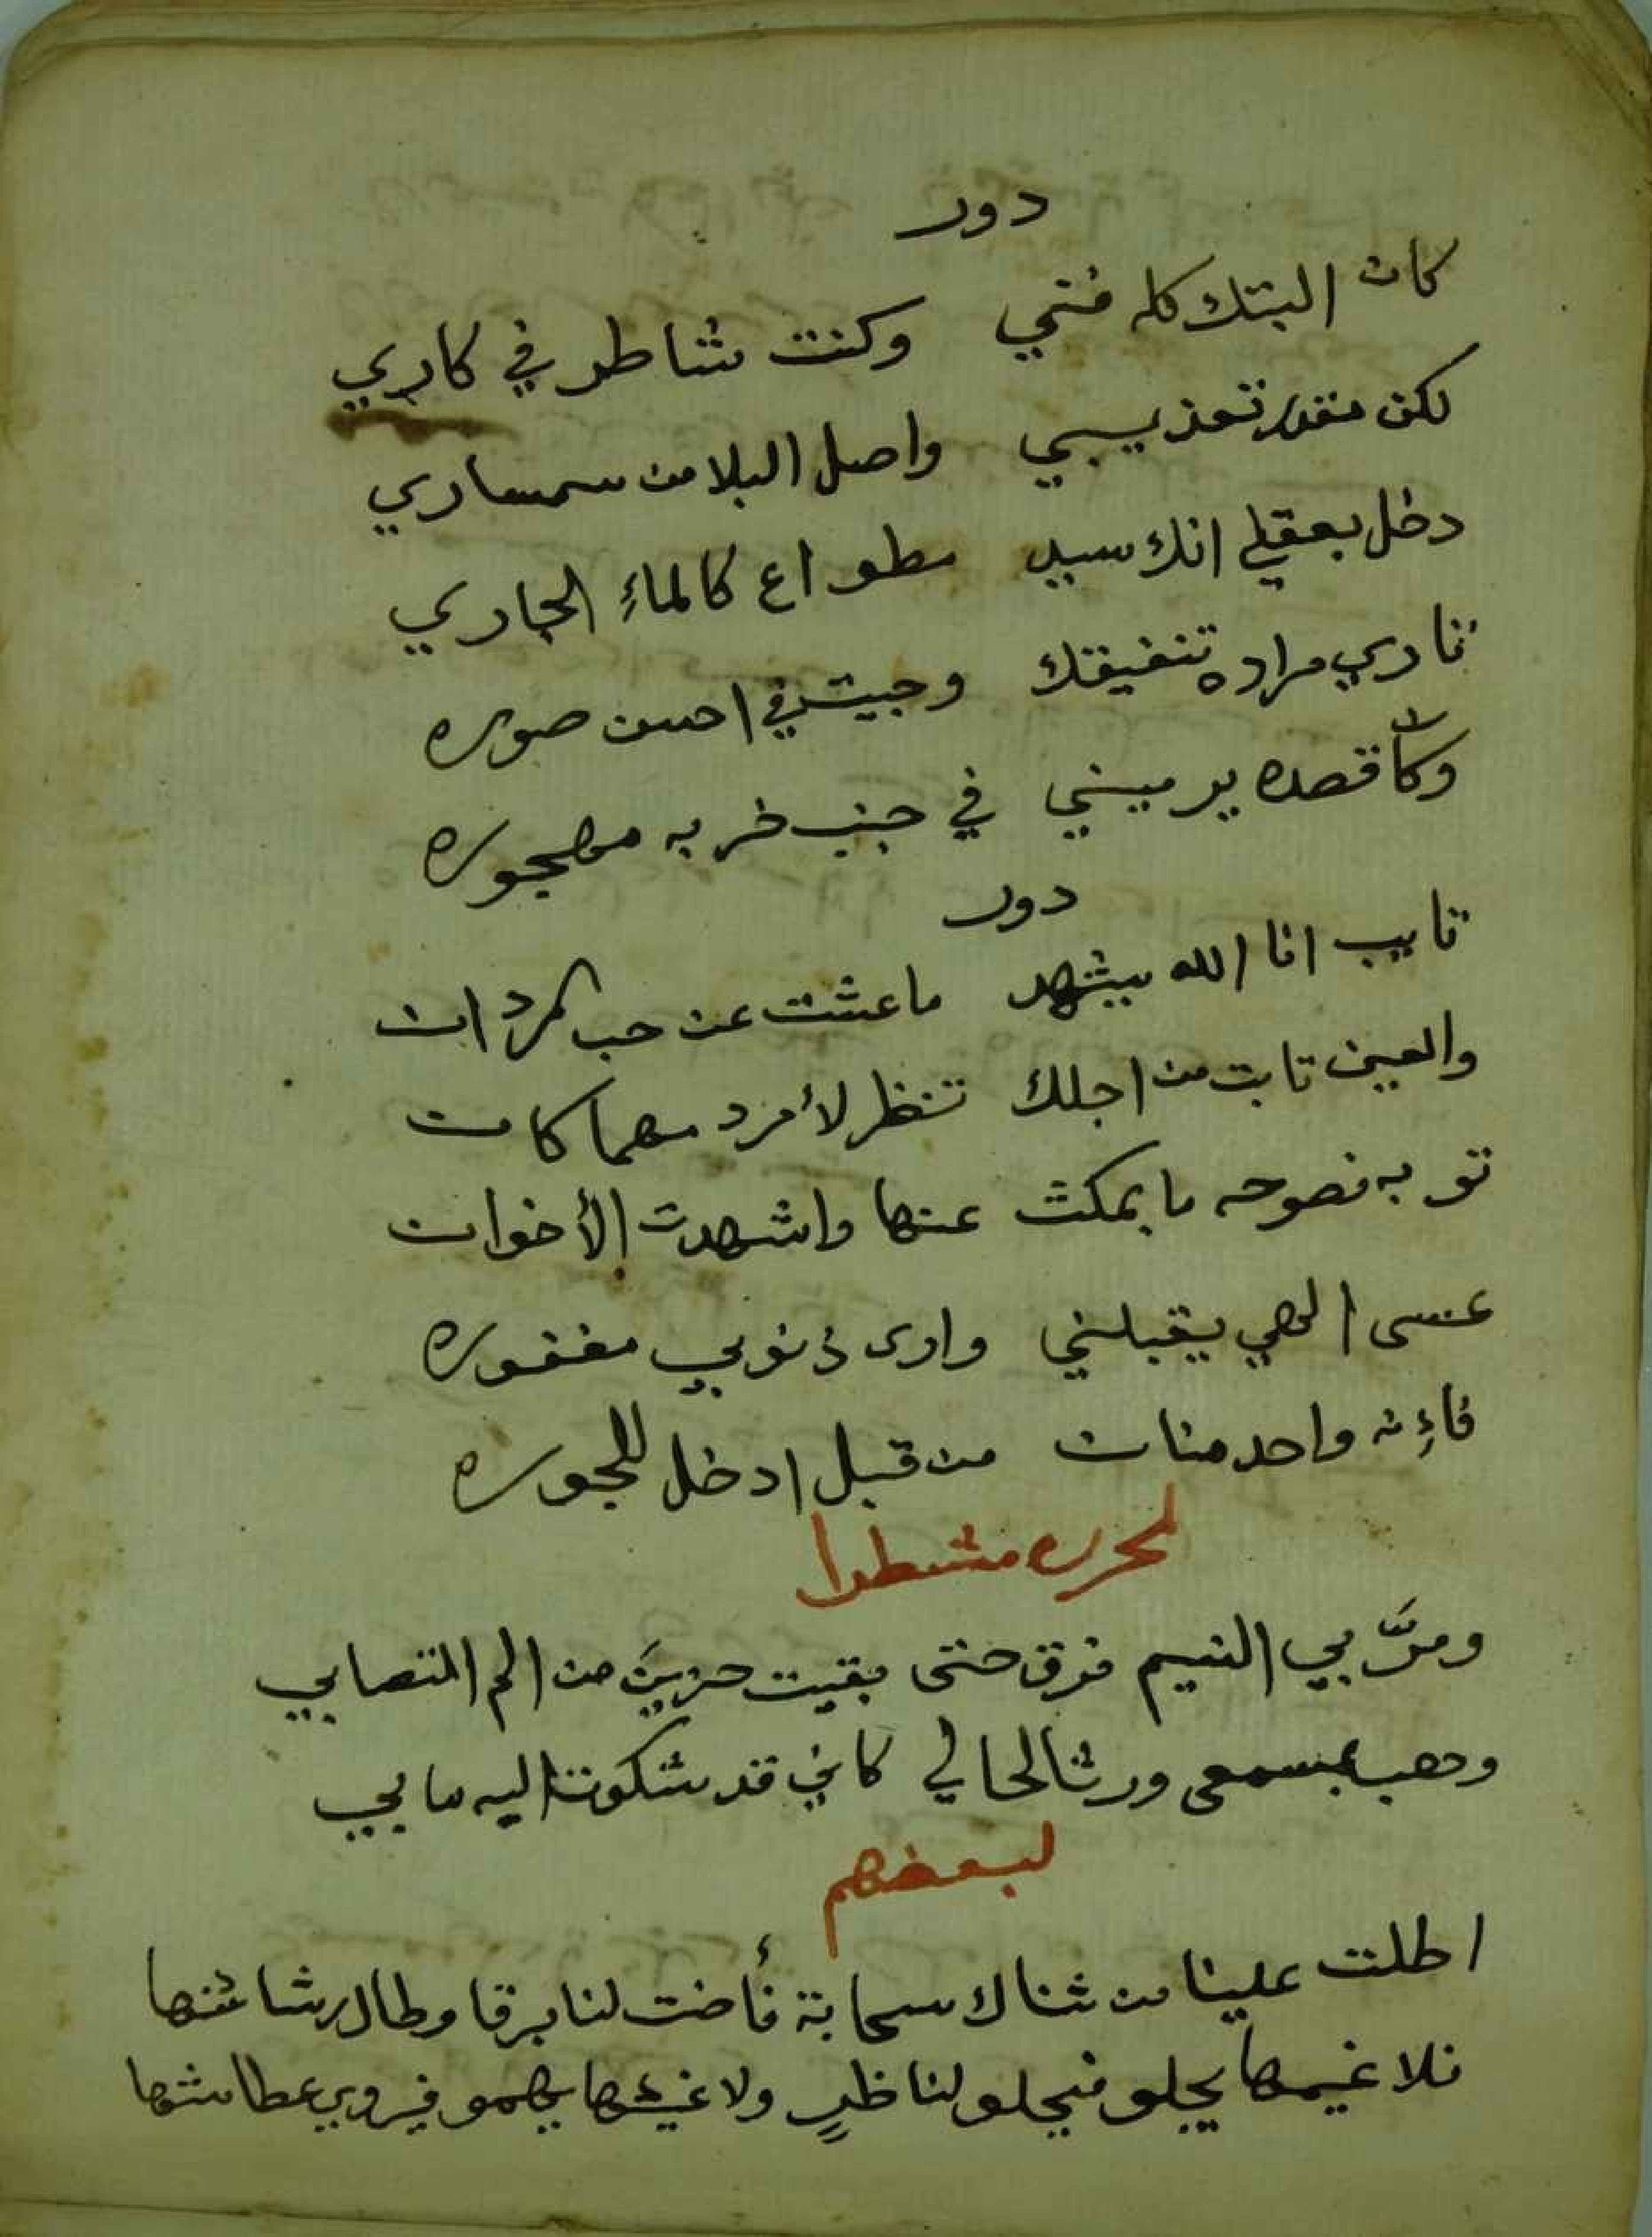 دور
كان البتك كله فني وكنت شاطر في كاري
لكن مقدر تعذيبي واصل البلا من سمساري
دخل بعقلي انك سيد مطواع كالماء الجاري
تاري مراده تنفيقك وجيت في احسن صوره
وكان قصده يرميني في جنب خربه مهجوره
دور
تايب انا الله بيشهد ما عشت عن حب المردان
والعين تابت من اجلك تنظر لأمرد مهما كان
توبه نصوحه ما بمكث عنها واشهدت الأخوان
عسى الهي يقبلني وارى ذنوبي مغفوره
فاءِنه واحد منان من قبل ادخل للجوره
لمحرره مشطرا
ومرَّ بي النسيم فرق حتى بقيت حزينَ من الم التصابي
وهب بمسمعى ورثا لحالي كاني قد شكوت اليه ما بي
لبعضهم
اطلت علينا من ثناك سحابة فأضت لنا برقا وطال رشاشها
فلا غيمها يجلو فيجلو لناظرٍ ولا غيثها يهمو فيروي عطاشها